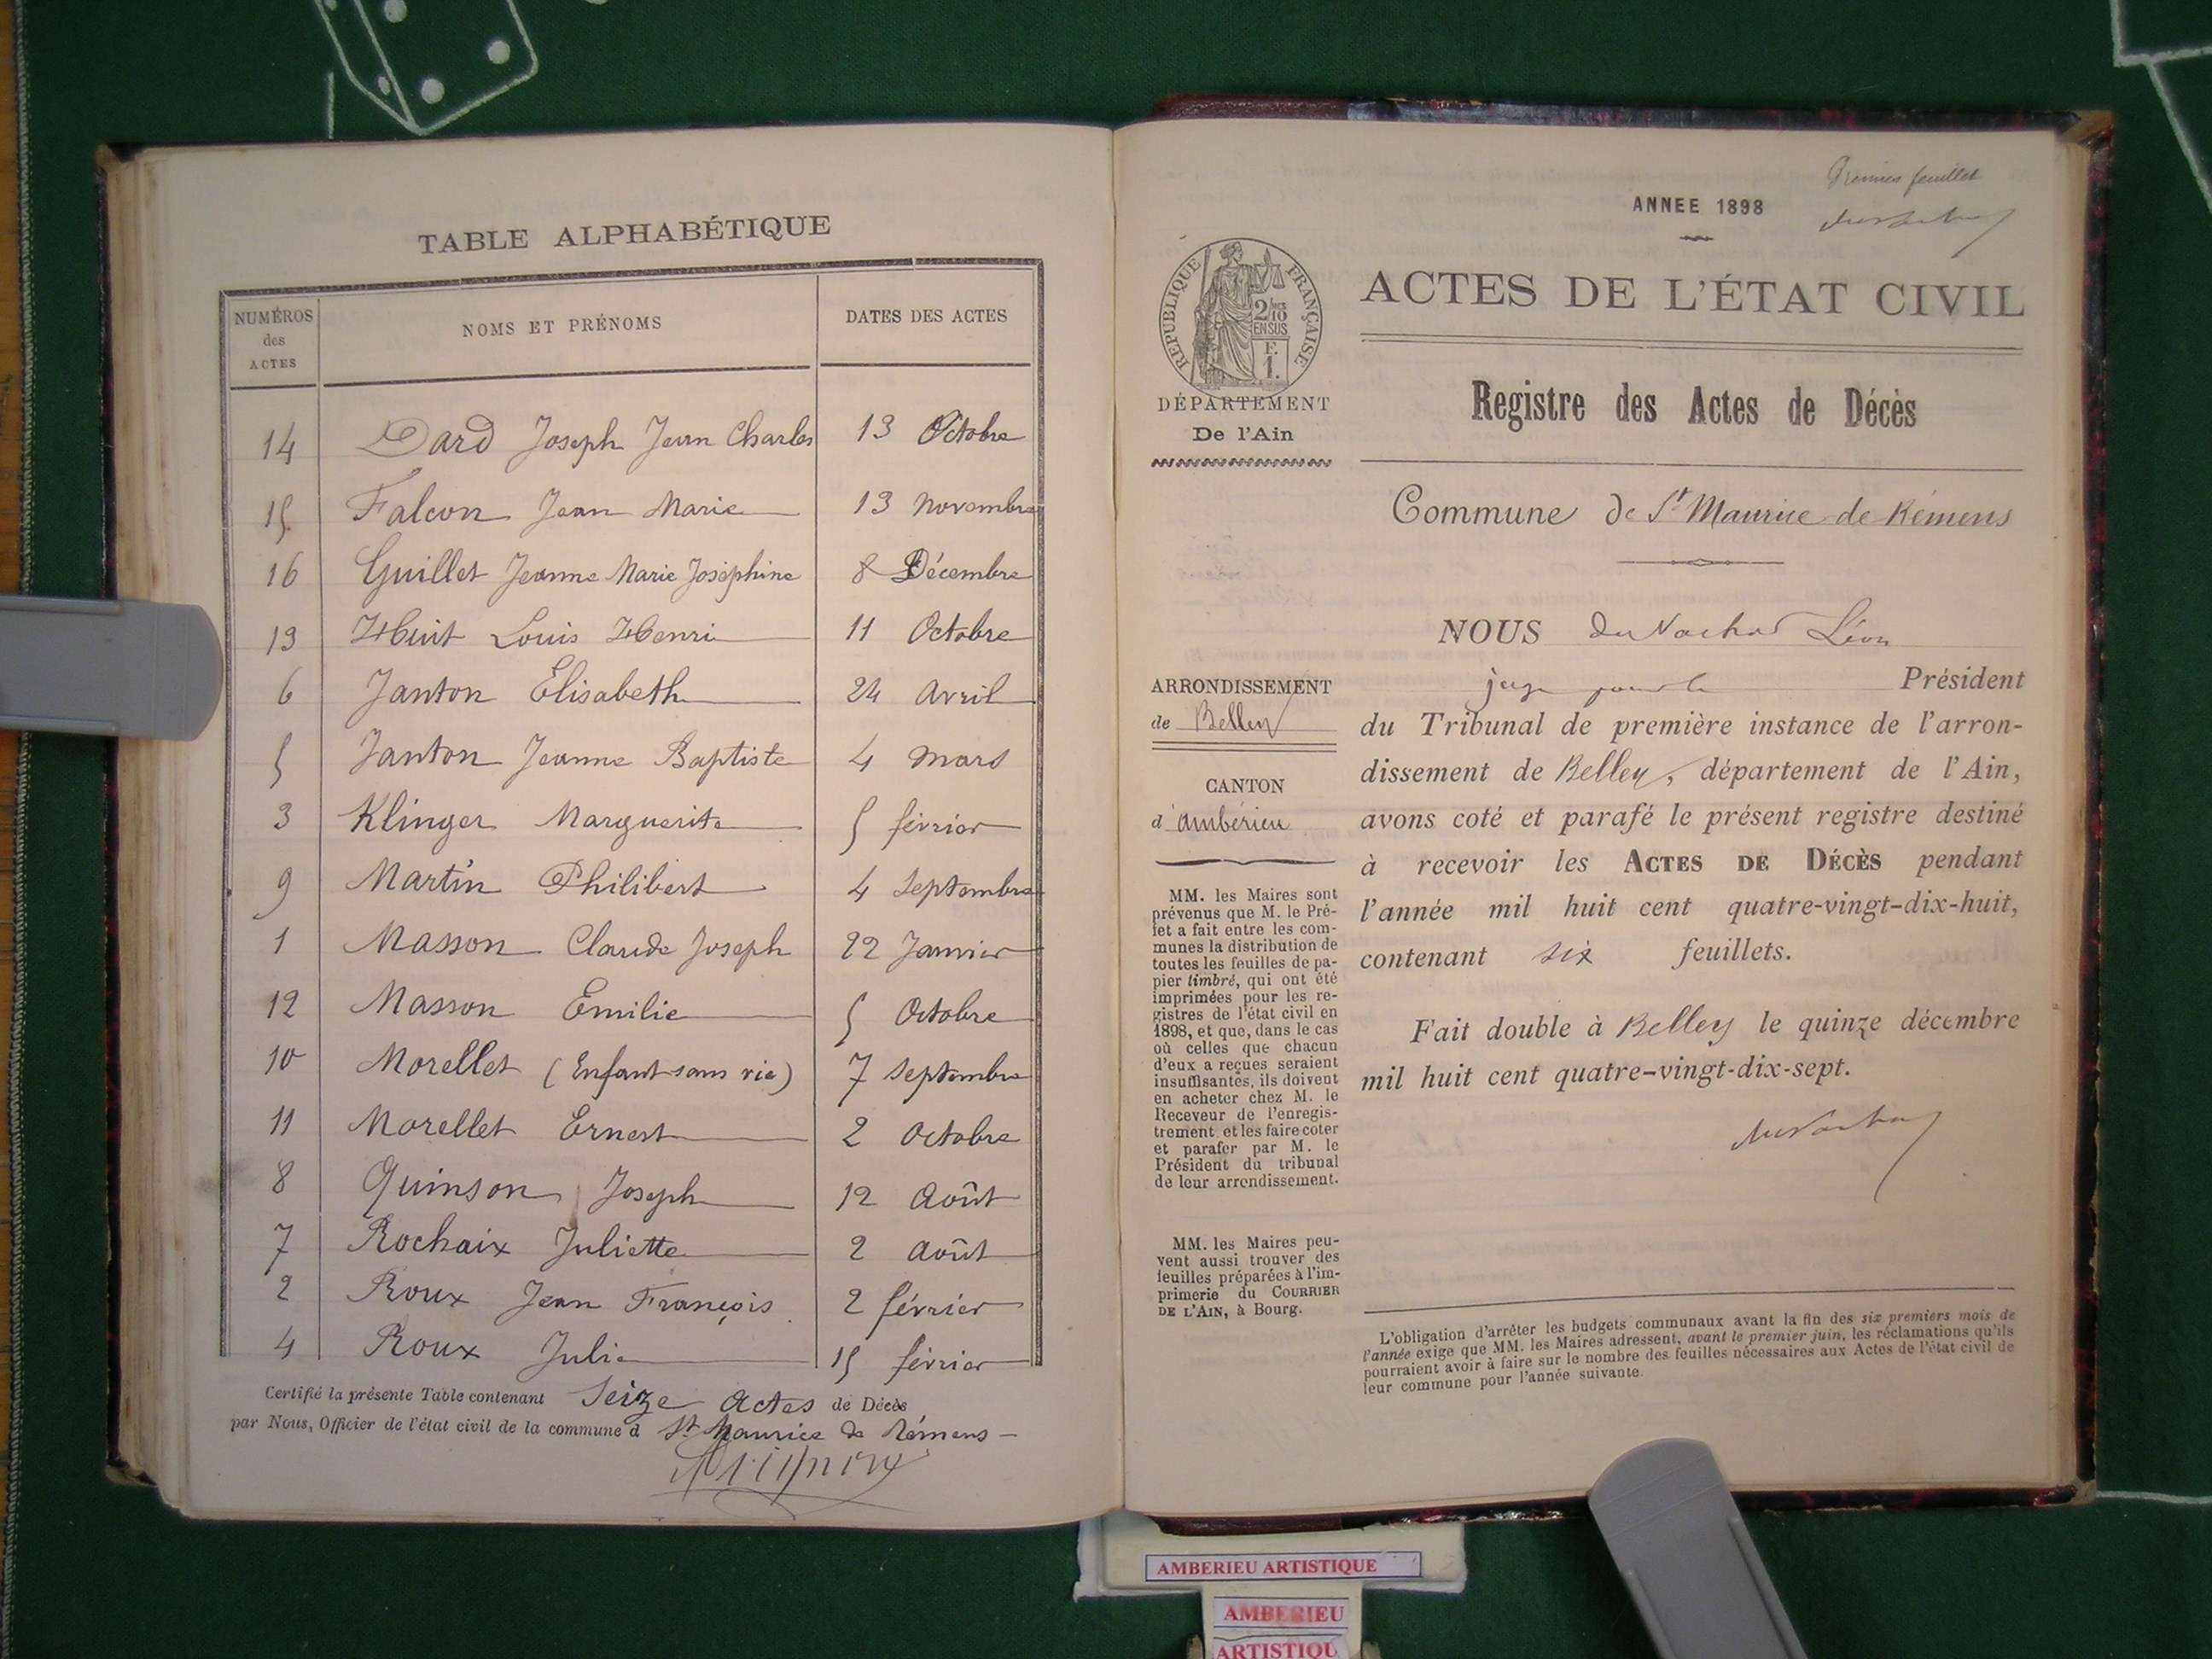 TABLE ALPHABÉTIQUE
NUMÉROS des ACTES NOMS ET PRÉNOMS DATES DES ACTES
14 Dard Joseph Jean Charles 13 Octobre
15 Falcon Jean Marie 13 Novembre
16 Guillet Jeanne Marie Joséphine 8 Décembre
13 Huit Louis Henri 11 Octobre
6 Janton Elisabeth 24 Avril
5 Janton Jeanne Baptiste 4 Mars
3 Klinger Marguerite 5 février
9 Martin Philibert 4 Septembre
1 Masson Claude Joseph 22 Janvier
12 Masson Emilie 5 Octobre
10 Morellet (Enfant sans vie) 7 Septembre
11 Morellet Ernest 2 Octobre
8 Quinson Joseph 12 Août
7 Rochaix Juliette 2 Août
2 Roux Jean François 2 février
4 Roux Julie 15 février
Certifié la présente Table contenant Seize Actes de Décès
par Nous, Officier de l'état civil de la commune d St Maurice de Rémens
Premier feuillet
ANNEE 1898
RÉPUBLIQUE FRANÇAISE
2/10
EN SUS
F.
1.
ACTES DE L'ÉTAT CIVIL
DÉPARTEMENT
De l'Ain
Registre des Actes de Décès
Commune de St Maurice de Rémens
NOUS du Nachat Léon
juge pour le Président
ARRONDISSEMENT
de Belley
du Tribunal de première instance de l'arron-
dissement de Belley, département de l'Ain,
CANTON
d'Ambérieu
avons coté et parafé le présent registre destiné
à recevoir les ACTES DE DÉCÈS pendant
l'année mil huit cent quatre-vingt-dix-huit,
contenant six feuillets.
Fait double à Belley le quinze décembre
mil huit cent quatre-vingt-dix-sept.
MM. les Maires sont
prévenus que M. le Pré-
fet a fait entre les com-
munes la distribution de
toutes les feuilles de pa-
pier timbré, qui ont été
imprimées pour les re-
gistres de l'état civil en
1898, et que, dans le cas
où celles que chacun
d'eux a reçues seraient
insuffisantes, ils doivent
en acheter chez M. le
Receveur de l'enregis-
trement et les faire coter
et parafer par M. le
Président du tribunal
de leur arrondissement.
MM. les Maires peu-
vent aussi trouver des
feuilles préparées à l'im-
primerie du COURRIER
DE L'AIN, à Bourg.
L'obligation d'arrêter les budgets communaux avant la fin des six premiers mois de
l'année exige que MM. les Maires adressent, avant le premier juin, les réclamations qu'ils
pourraient avoir à faire sur le nombre des feuilles nécessaires aux Actes de l'état civil de
leur commune pour l'année suivante.
AMBERIEU ARTISTIQUE
AMBERIEU
ARTISTIQU